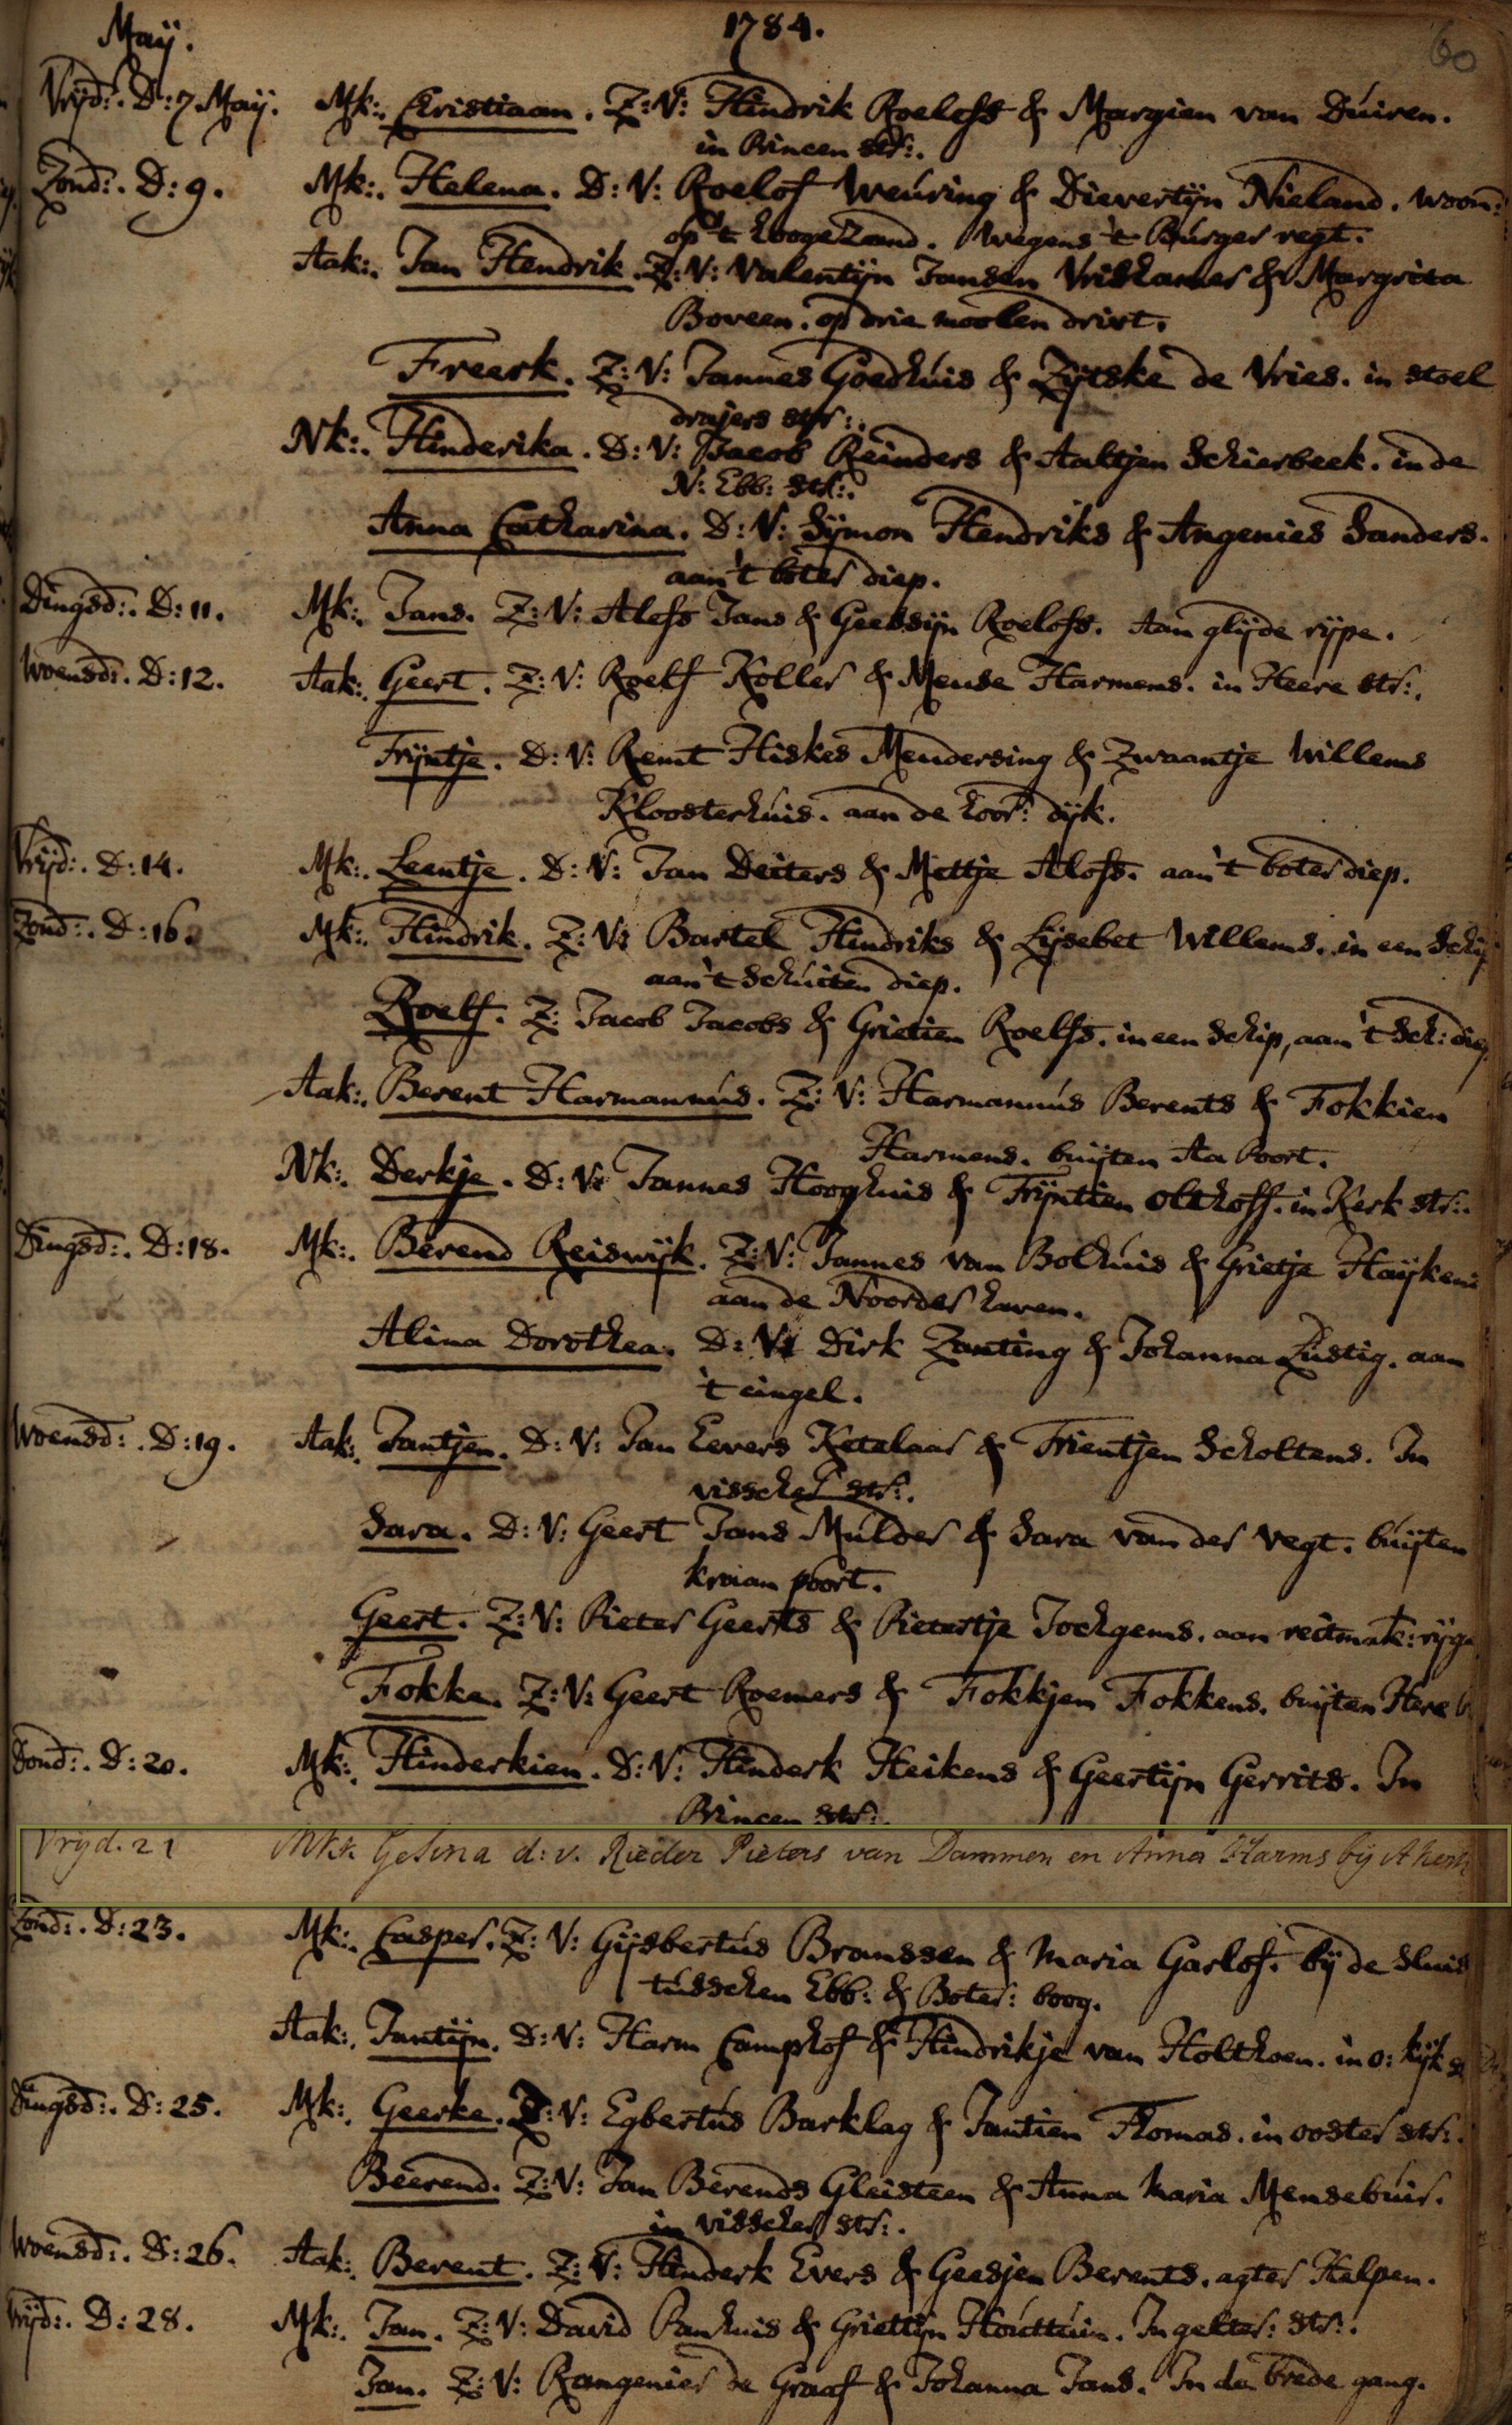 Maÿ. 1784. 60
Vrijd:. D: 7 Maÿ. Mk:. Cristiaan. Z: V: Hindrik Roelofs & Margien van Duiren.
in Princen str:.
Zond:. D: 9. Mk:. Helena. D: V: Roelof Weuring & Dievertijn Nieland. woon:
op 't hooge Zand. wegens 't Burger regt.
Aak:. Jan Hendrik. Z: V: Valentijn Jansen Vriskamer & Margrita
Boveen. op drie moolen drift.
Freerk. Z: V: Jannes Goedhuis & Zijtske de Vries. in stoel
drajers str:.
Nk:. Hinderika. D: V: Jacob Reinders & Aaltjen Schierbeek. in de
N: Ebb: str:.
Anna Catharina. D: V: Sÿmon Hendriks & Angenies Sanders.
aan 't boter diep.
Dingsd:. D: 11. Mk:. Jans. Z: V: Alefs Jans & Geessijn Roelofs. Aan glijde rijpe.
Woensd:. D: 12. Aak:. Geert. Z: V: Roelf Koller & Mense Harmens. in Heere str:.
Trijntje. D: V: Remt Hiskes Mendersing & Zwaantje Willems
Kloosterhuis. aan de hoor: dijk.
Vrijd:. D: 14. Mk:. Leentje. D: V: Jan Deiters & Mettje Alofs. aan 't boter diep.
Zond:. D: 16. Mk:. Hindrik. Z: V: Bartel Hindriks & Lijsebet Willems. in een Schip
aan 't Schuiten diep.
Roelf. Z: Jacob Jacobs & Grietien Roelfs. in een Schip, aan 't Sch: diep
Aak:. Berent Harmannus. Z: V: Harmannus Berents & Fokkien
Harmens. buijten Aa Poort.
Nk:. Derkje. D: V: Jannes Hooghuis & Trijntien Olthoff. in Kerk str:.
Dingsd:. D: 18. Mk:. Berend Reiswijk. Z: V: Jannes van Bolhuis & Grietje Haÿkens
aan de Noorder haven.
Alina Dorothea. D: V: Dirk Zanting & Johanna Lustig. aan
't cingel.
Woensd:. D: 19. Aak:. Jantjen. D: V: Jan Eevers Ketelaar & Trientjen Scholtens. In
visscher str:.
Sara. D: V: Geert Jans Mulder & Sara van der Vegt. buijten
kraan poort.
Geert. Z: V: Pieter Geerts & Pietertje Jochgems. aan reitmak: rijge
Fokke. Z: V: Geert Roemers & Fokkjen Fokkens. buijten Here
Dond:. D: 20. Mk:. Hinderkien. D: V: Hinderk Heikens & Geertijn Gerrits. In
Princen str:.
Vrijd. 21 Mk:. Gesina d: v. Rieder Pieters van Dammen en Anna Harms bij A kerk
Zond:. D: 23. Mk:. Casper. Z: V: Gijsbertus Branssen & Maria Garlof. bij de Sluis
tusschen Ebb: & Boter: boog.
Aak:. Jantijn. D: V: Harm Camphof & Hindrikje van Holthoen. in o: kijk st
Dingsd:. D: 25. Mk:. Geerke. D: V: Egbertus Barklag & Jantien Thomas. in ooster str:.
Beerend. Z: V: Jan Berends Gleisteen & Anna Maria Mensebuir.
in visscher str:.
Woensd:. D: 26. Aak:. Berent. Z: V: Hinderk Evers & Geesjen Berents. agter Helpen.
Vrijd:. D: 28. Mk:. Jan. Z: V: David Panhuis & Griettijn Houttuin. In gelter: str:.
Jan. Z: V: Rangenier de Graaf & Johanna Jans. In de brede gang.